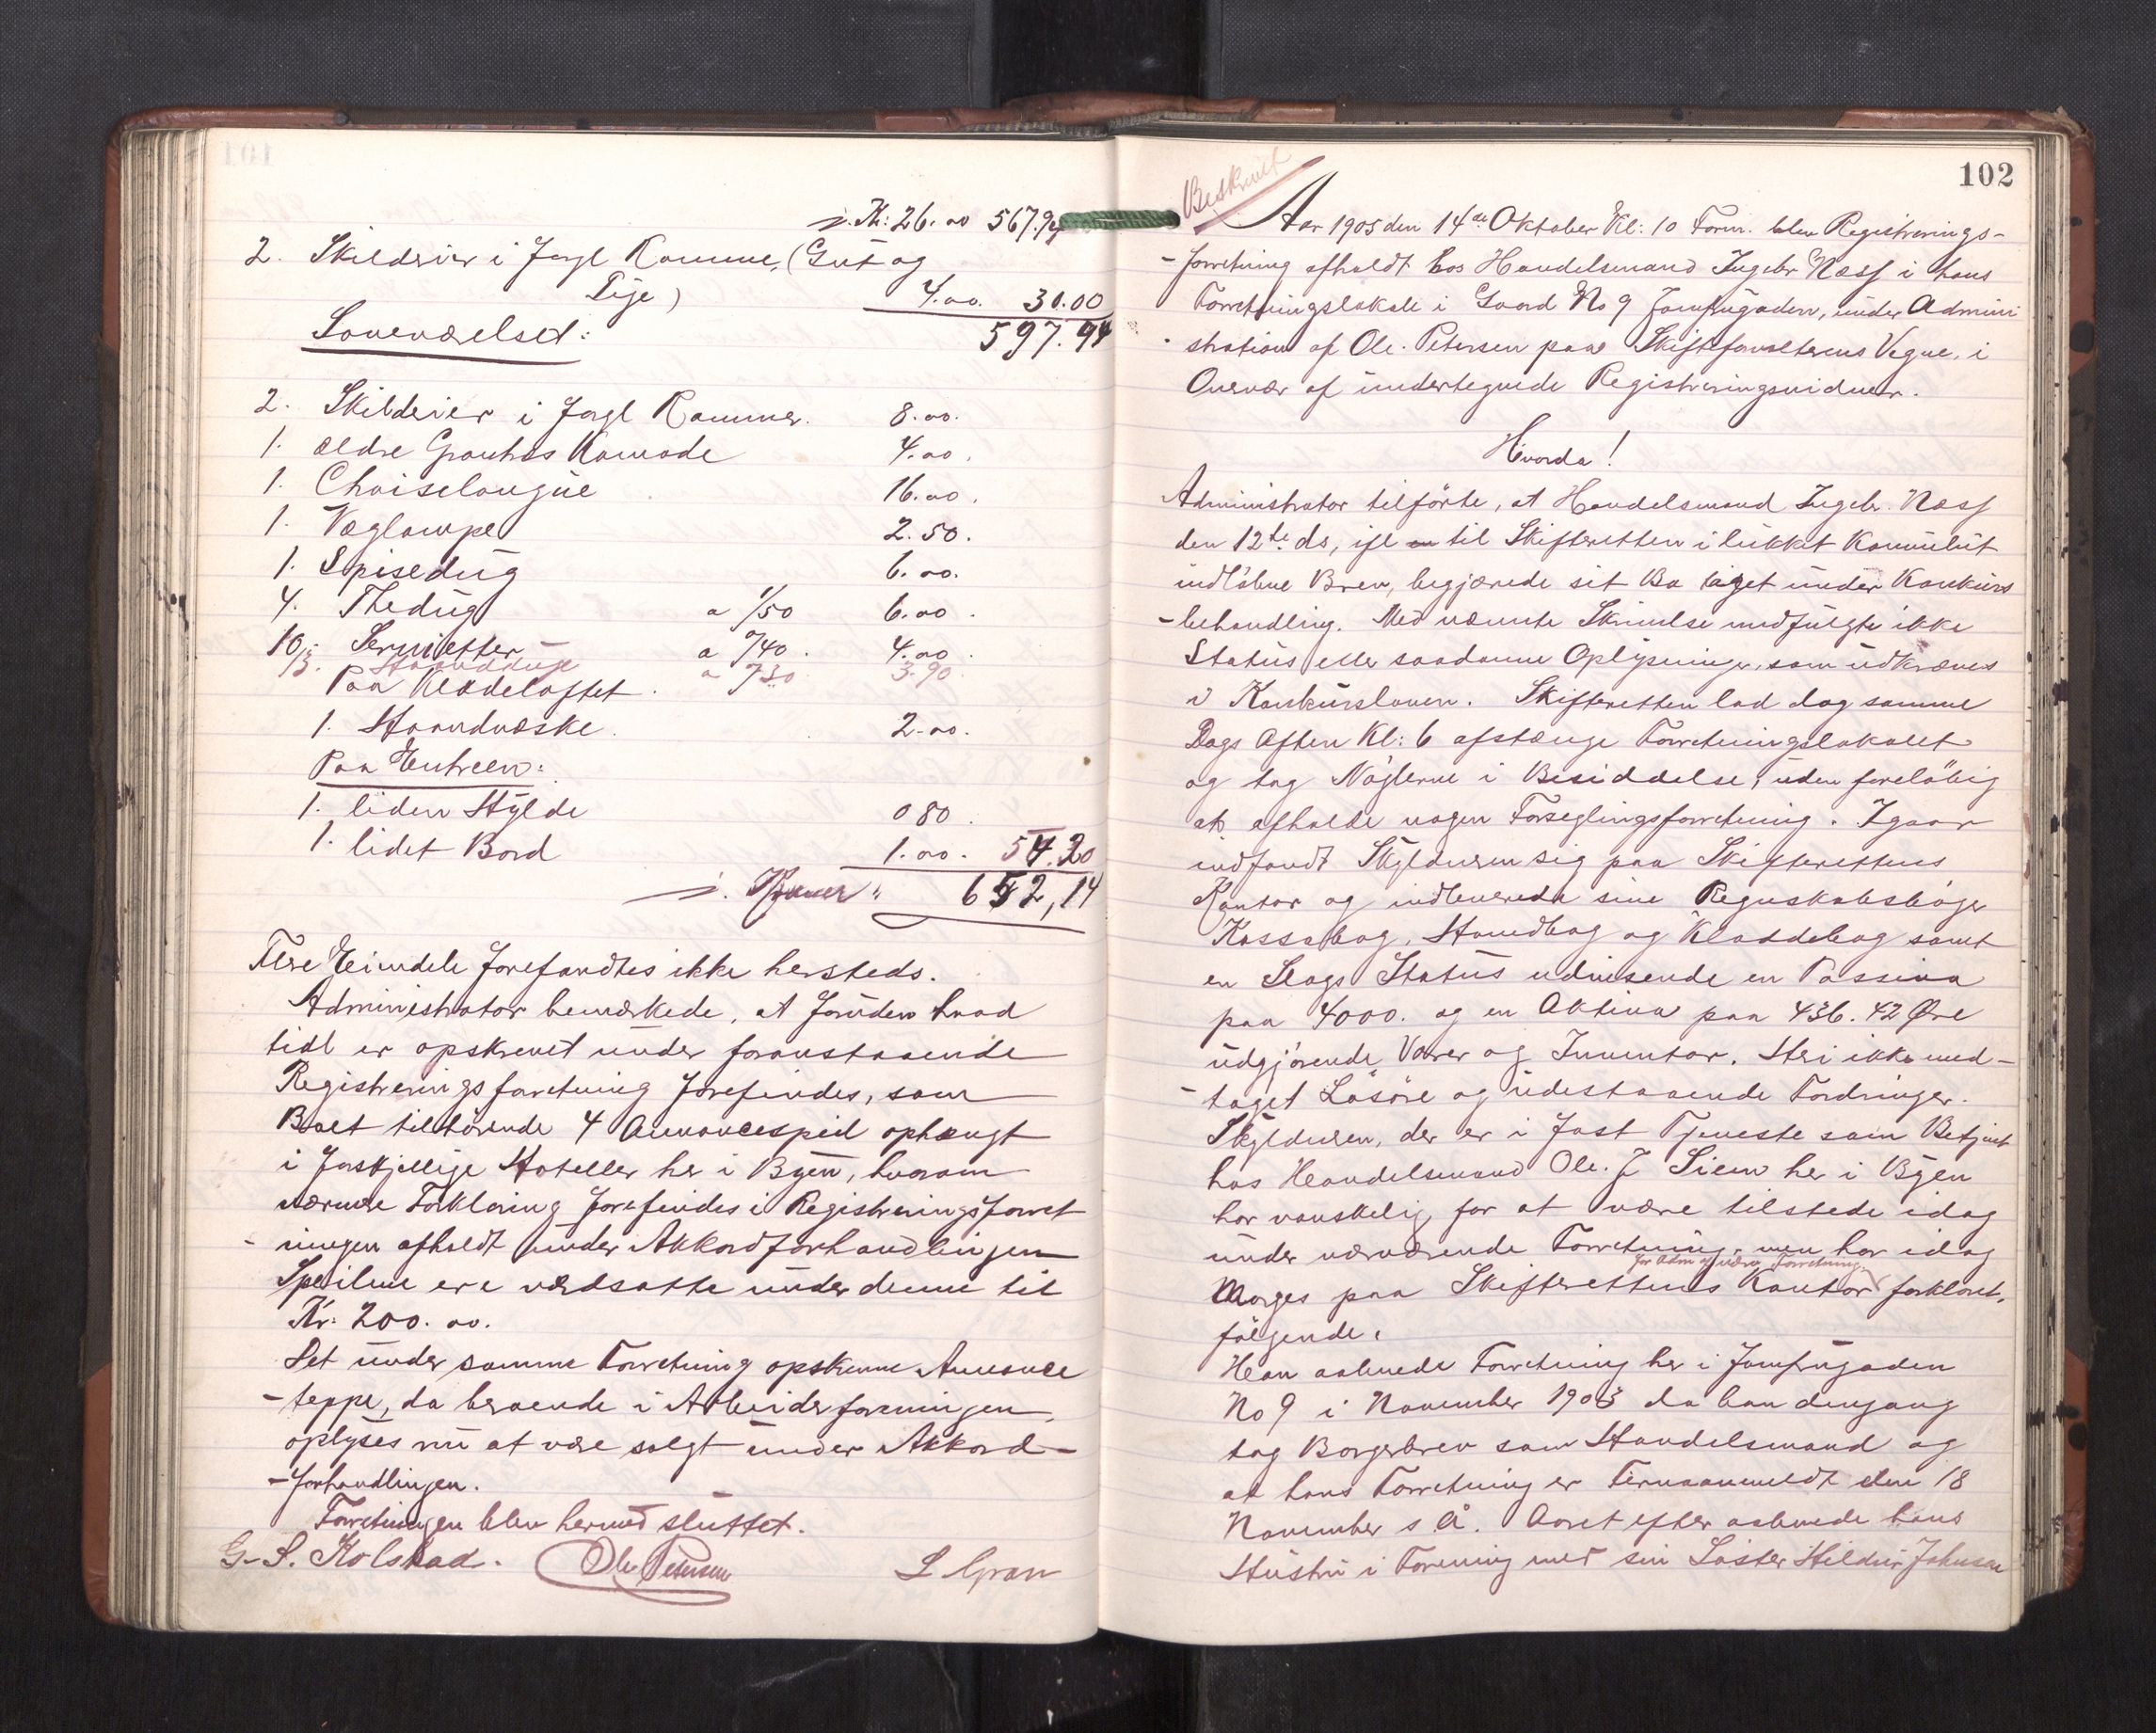 i. Kr: 26.00 567.94
2. Skilderier i forgl Ramme, (Gut og
Pige) 4.00. 30.00
597.94
Soveværelset:
2. Skilderier i forgl Rammer. 8.00.
1. ældre Granhøs Komode 4.00.
1. Chaiselongue 16.00.
1. Væglampe 2.50.
1. Spisedug 6.00.
4. Thedug a 1/50 6.00.
10 Servietter a 0/40. 4.00.
13. Haandduge a /30 3.90
Paa Klædeloftet.
1. Haandvæske. 2.00.
Paa Entreen:
1. liden Hylde 0 80.
1. lidet Bord 1.00. 54.20
i. Kroner " 652,14
Flere Eiendele forefandtes ikke hersteds.
Administrator bemærkede, at foruden hvad
tidl er opskrevet under foranstaaende
Registreringsforretning forefindes, som
Boet tilhørende 4 Annoncespeil ophængt
i forskjellige Hoteller her i Byen, hvorom
nærmere Forklaring forefindes i Registreringsforret
-ningen afholdt under Akkordforhandlingen
Speilene ere værdsatte under denne til
Kr: 200.00.
Det under samme Forretning opskrevne Annonce
-teppe, da beroende i Arbeiderforeningen,
oplyses nu at være solgt under Akkord-
-forhandlingen.
Forretningen blev hermed sluttet.
G. S. Kolstad. Ole Petersen L Gran
102
Beskrevet
Aar 1905 den 14de Oktober Kl: 10 Form. blev Registrerings-
-forretning afholdt hos Handelsmand Ingebr Næss i hans
Forretningslokale i Gaard No 9 Jomfrugaden, under Admini
-stration af Ole. Petersen paa Skifteforvalterens Vegne, i
Overvær af undertegnede Registreringsvidner.
Hvorda!
Administrator tilførte, at Handelsmand Ingebr. Næss
den 12te ds, ifl en til Skifteretten i lukket Konvolut
indløbne Brev, begjærede sit Bo taget under Konkurs
-behandling. Med nævnte Skrivelse medfulgte ikke
Status eller saadanne Oplysninger, som udkræves
i Konkursloven. Skifteretten lod dog samme
Dags Aften Kl: 6 afstænge Forretningslokalet
og tog Nøglerne i Besiddelse, uden foreløbig
at afholde nogen Forseglingsforretning. Igaar
indfandt Skyldneren sig paa Skifterettens
Kontor og indleverede sine Regnskabsbøger
Kassabog, Handbog og Kladdebog samt
en Slags Status udvisende en Passiva
paa 4000. og en Aktiva paa 436.42 Øre
udgjørende Varer og Inventar. Heri ikke med-
-taget Løsøre og udestaaende Fordringer.
Skyldneren, der er i fast Tjeneste som Betjent
hos Handelsmand Ole. J Siem her i Byen
har vanskelig for at være tilstede idag
under nærværende Forretning, men har idag
for Adm af nærv. Forretning
Morges paa Skifterettens Kontor forklaret,
følgende:
Han aabnede Forretning her i Jomfrugaden
No 9 i November 1903 da han dengang
tog Borgerbrev som Handelsmand og
at hans Forretning er Firmaanmeldt den 18
November s A. Aaret efter aabnede hans
Hustru i Forening med sin Søster Hildur Johnsen